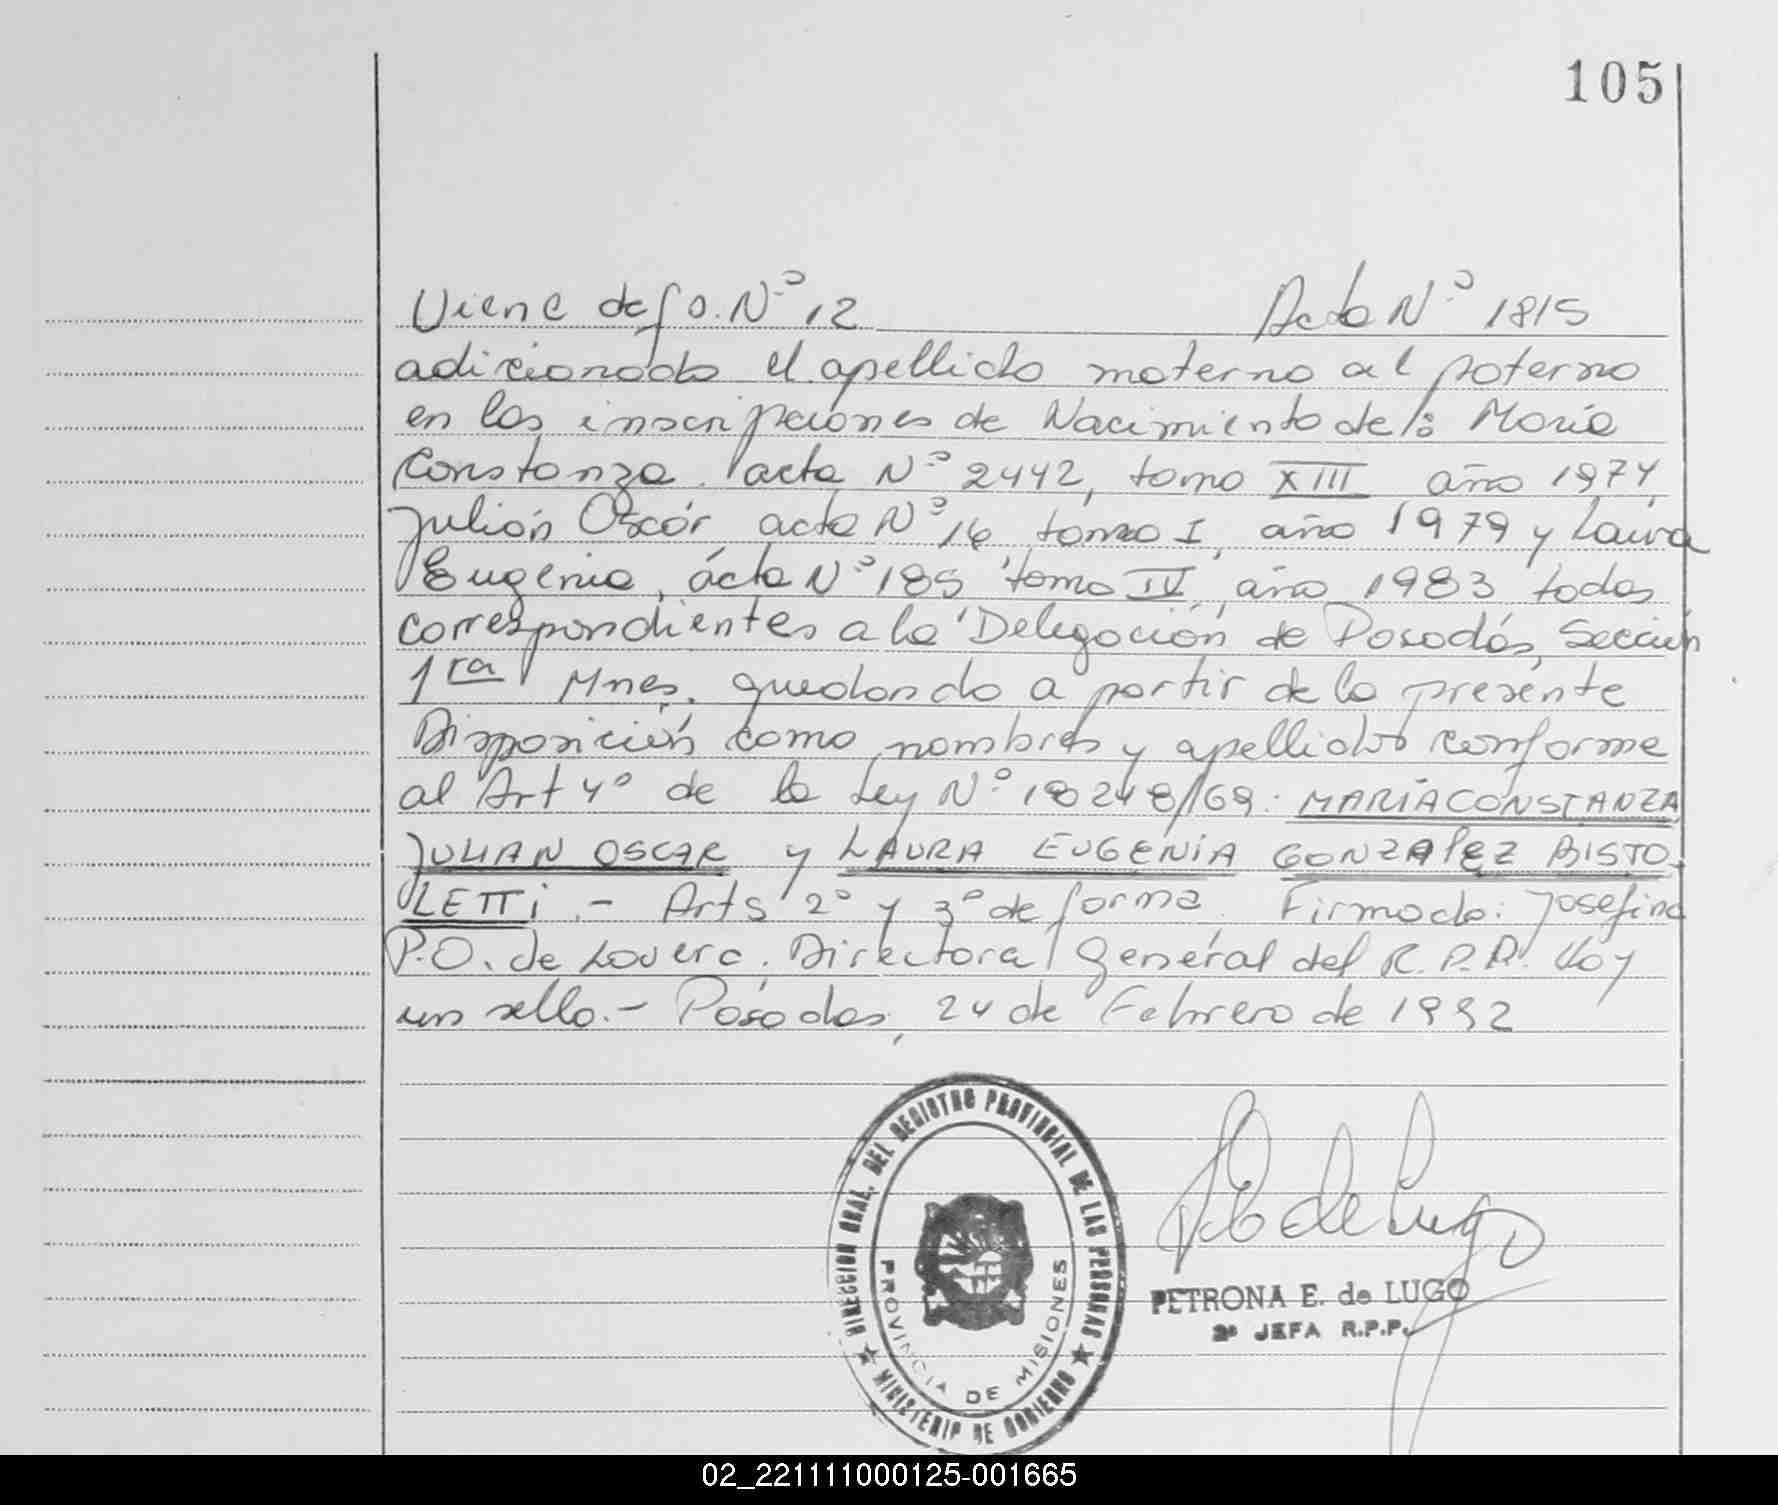 105
Viene de fo. Nº 12 Acta Nº 1815
adicionado el apellido materno al paterno
en las inscripciones de Nacimiento de: María
Constanza acta Nº 2442, tomo XIII año 1974,
Julián Oscar acta Nº 16 tomo I, año 1979 y Laura
Eugenia, acta Nº 185 tomo IV, año 1983 todas
correspondientes a la Delegación de Posadas, Sección
1ra Mnes. quedando a partir de la presente
Disposición como nombres y apellidos conforme
al Art 4º de la Ley Nº 18248/69: MARIA CONSTANZA
JULIAN OSCAR y LAURA EUGENIA GONZALEZ BISTO-
LETTI.- Arts 2º y 3º de forma. Firmado: Josefina
P.O. de Lovera. Directora General del R.P.P. Hay
un sello.- Posadas, 24 de Febrero de 1992
DIRECCION GRAL. DEL REGISTRO PROVINCIAL DE LAS PERSONAS
PROVINCIA DE MISIONES
MINISTERIO DE GOBIERNO
P E de Lugo
PETRONA E. de LUGO
2ª JEFA R.P.P.
02_221111000125-001665